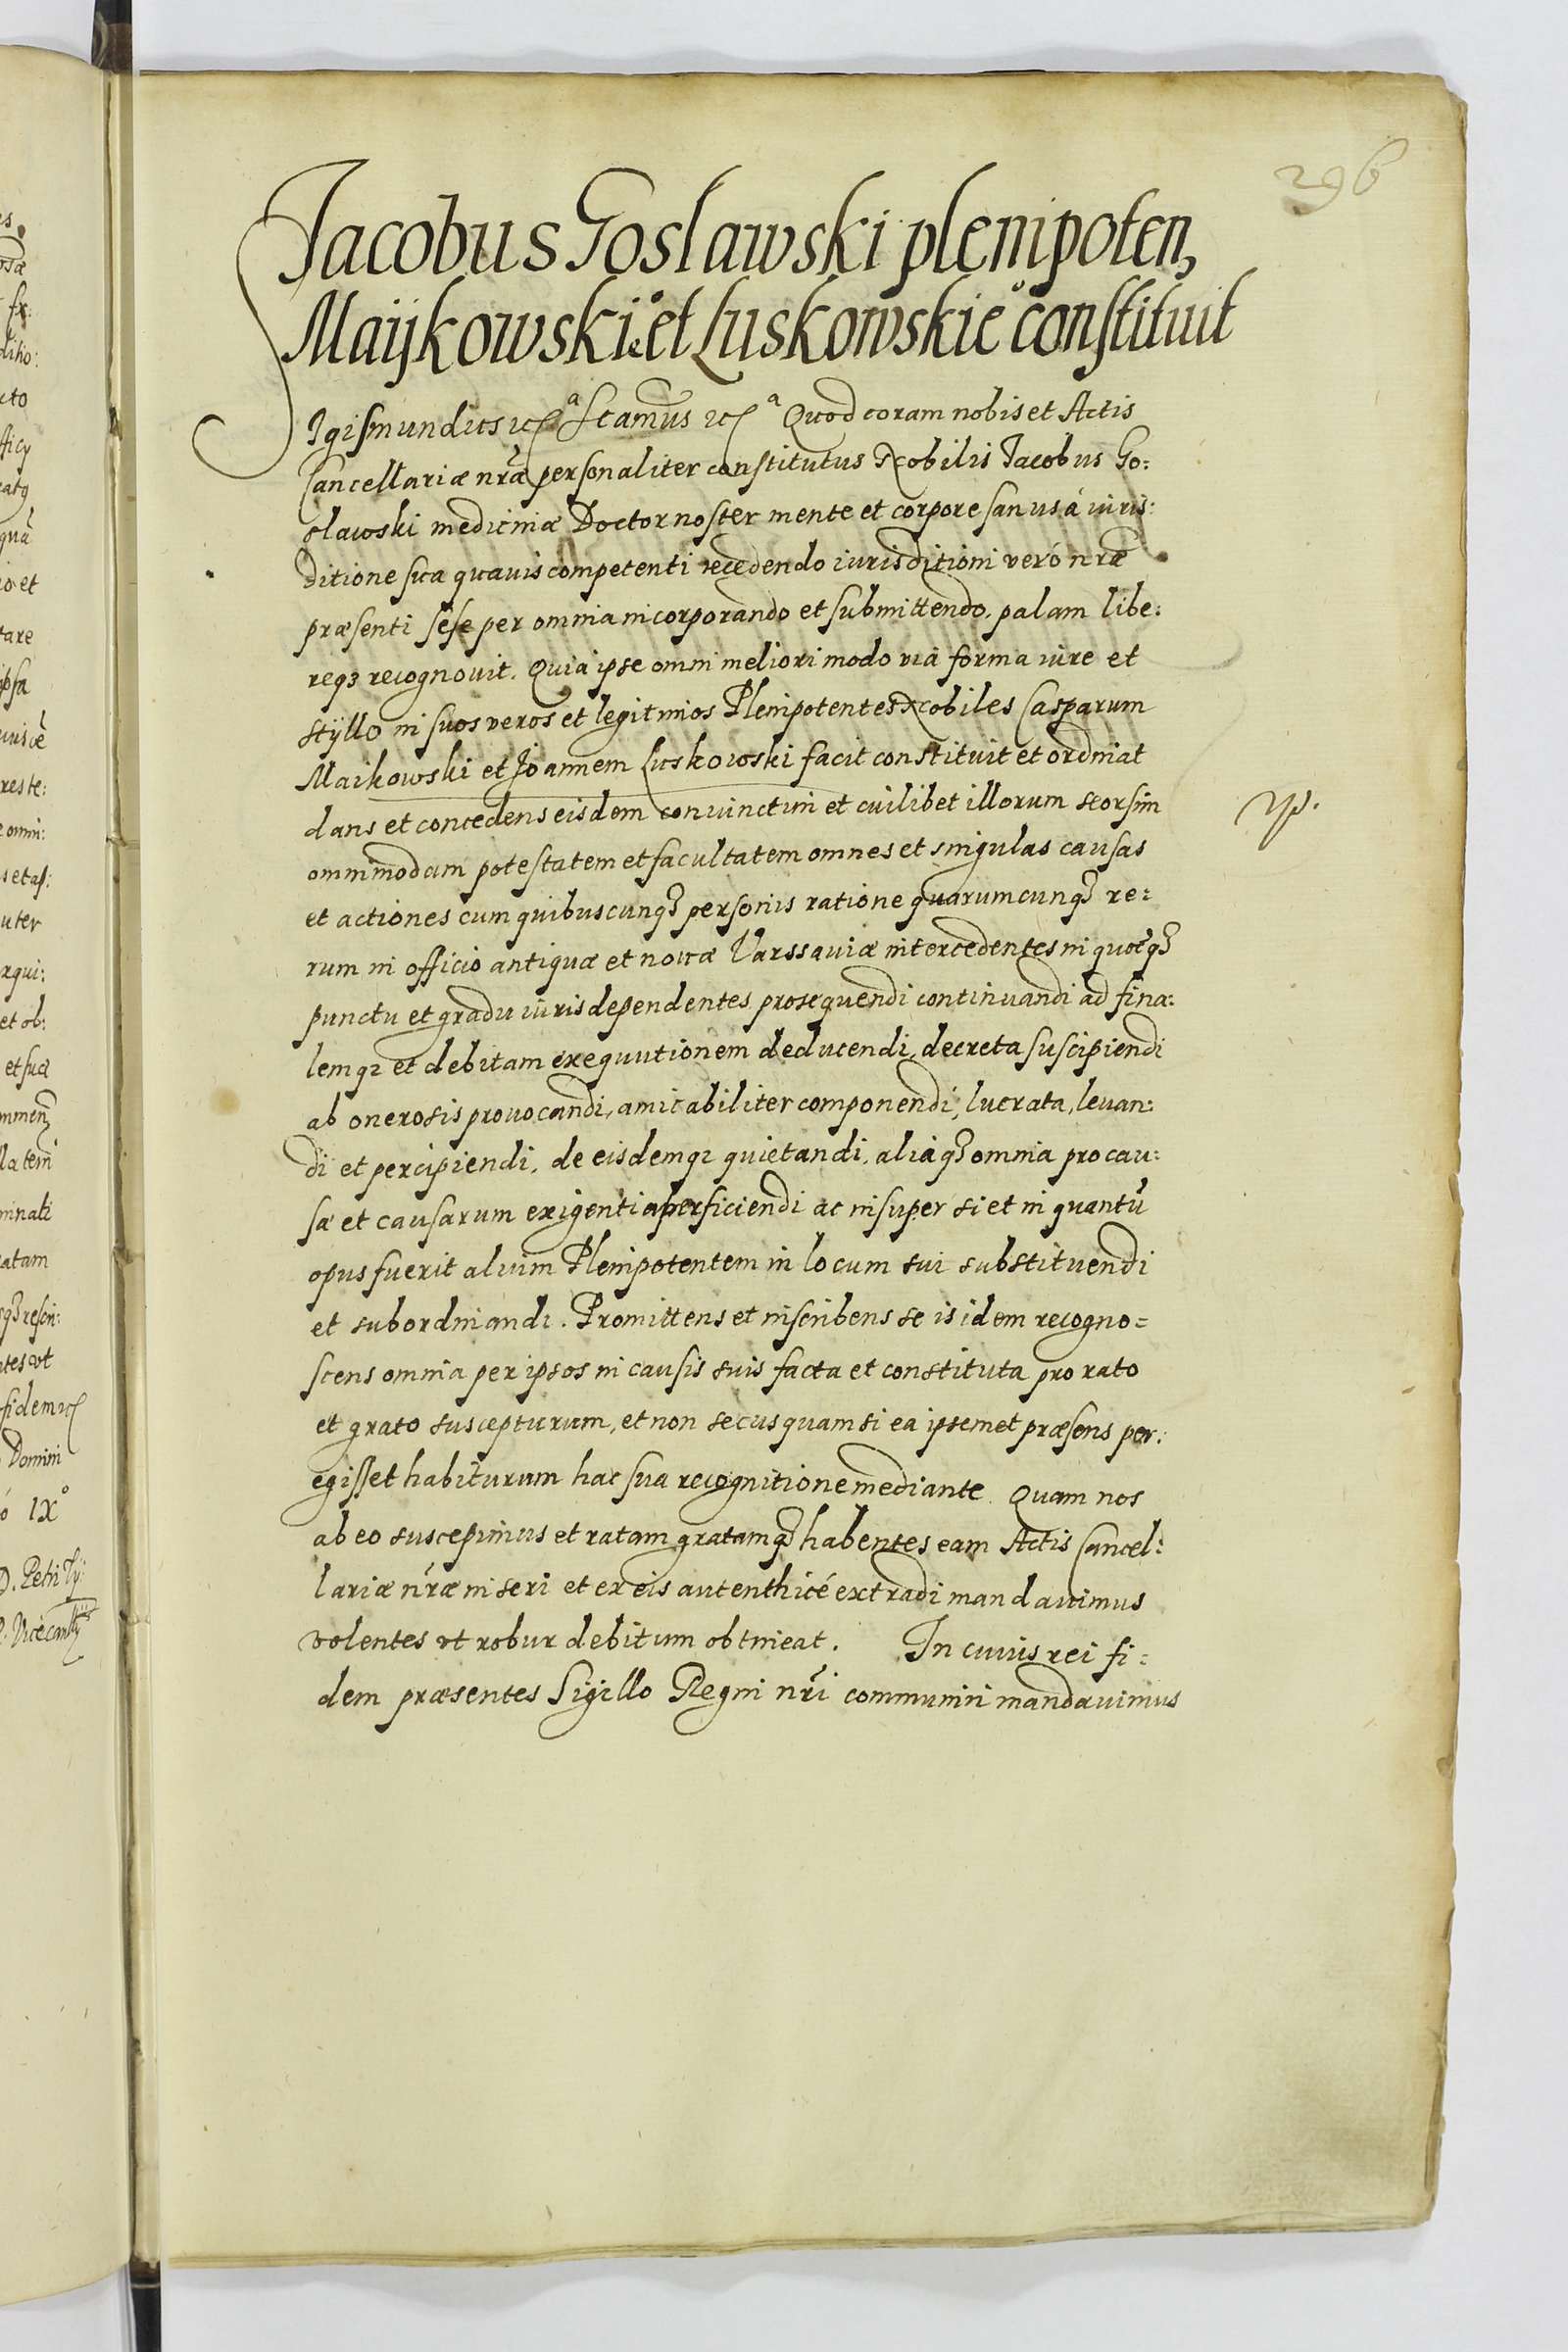 296
Jacobus Goslawski plenipoten,
Maijkowskiº et Luskowskieº constituit
Igismundus etc. Scamus etc. Quod coram nobis et Actis
Cancellariæ nræ personaliter constitutus Nobilis Jacobus Go:
slawski medicinæ Doctor noster mente et corpore sanus á iuris:
ditione sua quauis competenti recedendo iurisditioni veró nræ
præsenti sese per omnia incorporando et submittendo, palam libe:
reqȝ recognouit. Quia ipse omni meliori modo via forma iure et
styllo in suos veros et legitimos Plenipotentes Nobiles Casparum
Maikowski et Joannem Luskowski facit constituit et ordinat
dans et concedens eisdem conuinctim et cuilibet illorum seorsim
ommimodam potestatem et facultatem omnes et singulas causas
et actiones cum quibuscunqȝ personis ratione quarumcunqȝ re:
rum in officio antiquæ et nouæ Varssauiæ intercedentes in quotqȝ
punctu et gradu iuris dependentes prosequendi continuandi ad fina:
lemqȝ et debitam exequutionem deducendi, decreta suscipiendi
ab onerosis prouocandi, amicabiliter componendi, lucrata, leuan:
di et percipiendi, de eisdemqȝ quietandi, aliaqȝ omnia pro cau:
sæ et causarum exigentia perficiendi ac insuper si et in quantū
opus fuerit alium Plenipotentem in locum sui substituendi
et subordinandi. Promittens et inscribens se isidem recogno=
scens omnia per ipsos in causis suis facta et constituta pro rato
et grato suscepturum, et non secus quam si ea ipsemet præsens per:
egisset habiturum hac sua recognitione mediante. Quam nos
ab eo suscepimus et ratam gratamqȝ habentes eam Actis Cancel:
lariæ nræ inseri et ex eis autenthicé extradi mandauimus
volentes vt robur debitum obtineat. In cuius rei fi:
dem præsentes Sigillo Regni nri communiri mandauimus